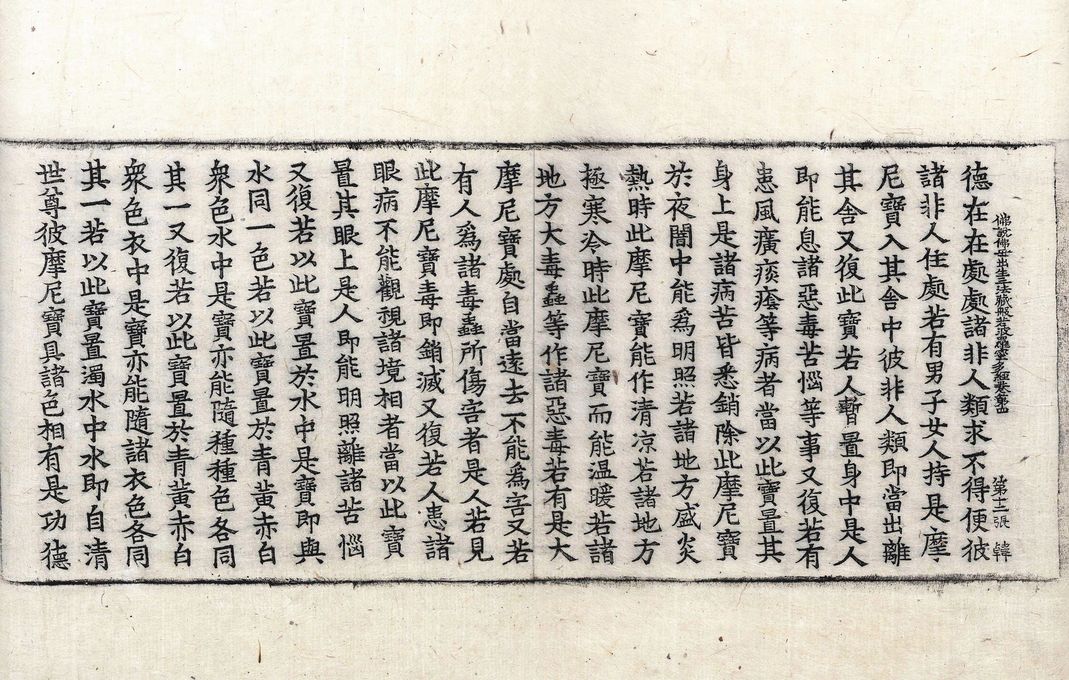 佛說佛母出生三法藏般若波羅蜜多經卷第 張 韓
德在在處處諸非人類求不得便彼
諸非人住處若有男子女人持是摩
尼寶入其舍中彼非人類即當出離
其舍又復此寶若人暫置身中是人
即能息諸惡毒苦惱等事又復若有
患風癀痰癊等病者當以此寶置其
身上是諸病苦皆悉銷除此摩尼寶
於夜闇中能爲明照若諸地方盛炎
熱時此摩尼寶能作清涼若諸地方
極寒冷時此摩尼寶而能温暖若諸
地方大毒蟲等作諸惡毒若有是大
摩尼寶處自當遠去不能爲害又若
有人爲諸毒蟲所傷害者是人若見
此摩尼寶毒即銷滅又復若人患諸
眼病不能觀視諸境相者當以此寶
置其眼上是人即能明照離諸苦惱
又復若以此寶置於水中是寶即與
水同一色若以此寶置於青黃赤白
衆色水中是寶亦能隨種種色各同
其一又復若以此寶置於青黃赤白
衆色衣中是寶亦能隨諸衣色各同
其一若以此寶置濁水中水即自清
世尊彼摩尼寶具諸色相有是功德